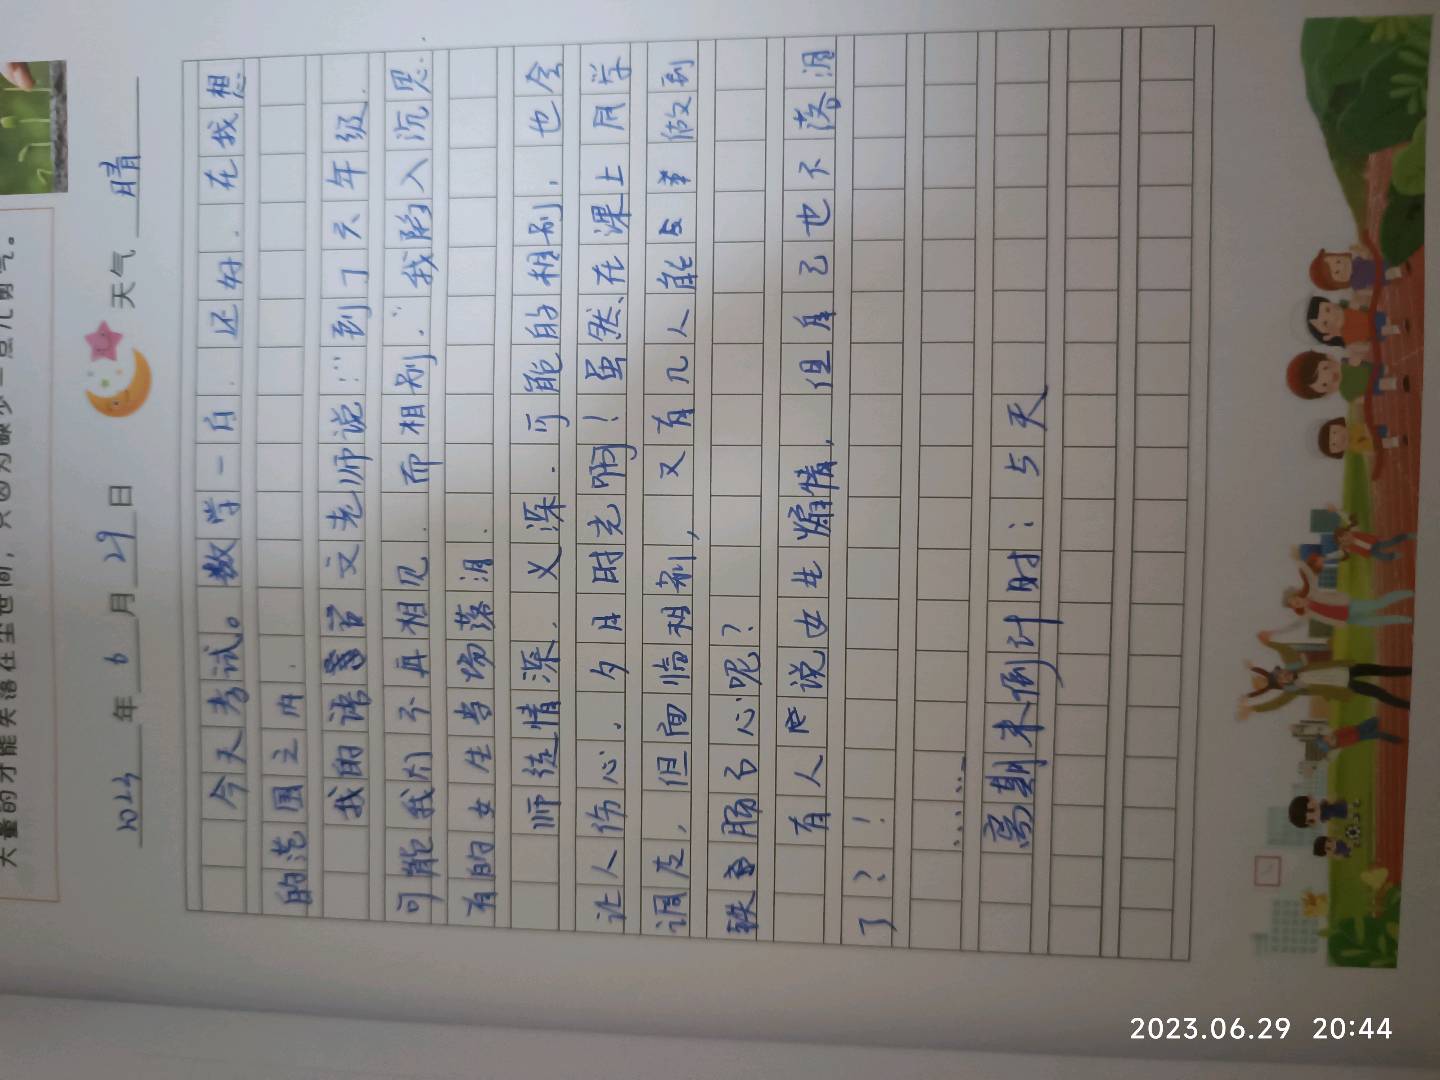 大量的才能失落在尘世间，只因为缺少一点儿勇气。
2023年6月29日 天气 晴
今天考试。数学一白.还好.在我想
的范围之内.
我的语言文老师说:"到了六年级.
可能我们不再相见.而相别."我陷入沉思.
有的女生当场落泪.
师徒情深.义深.可能的相别.也会
让人伤心.夕日时光啊!虽然在课上同学
调皮,但面临相别,又有几人能去做到
铁石肠石心呢?
有人说女生煽情,但自己也不落泪
了?!
……
离期末倒计时:5天
2023.06.29 20:44